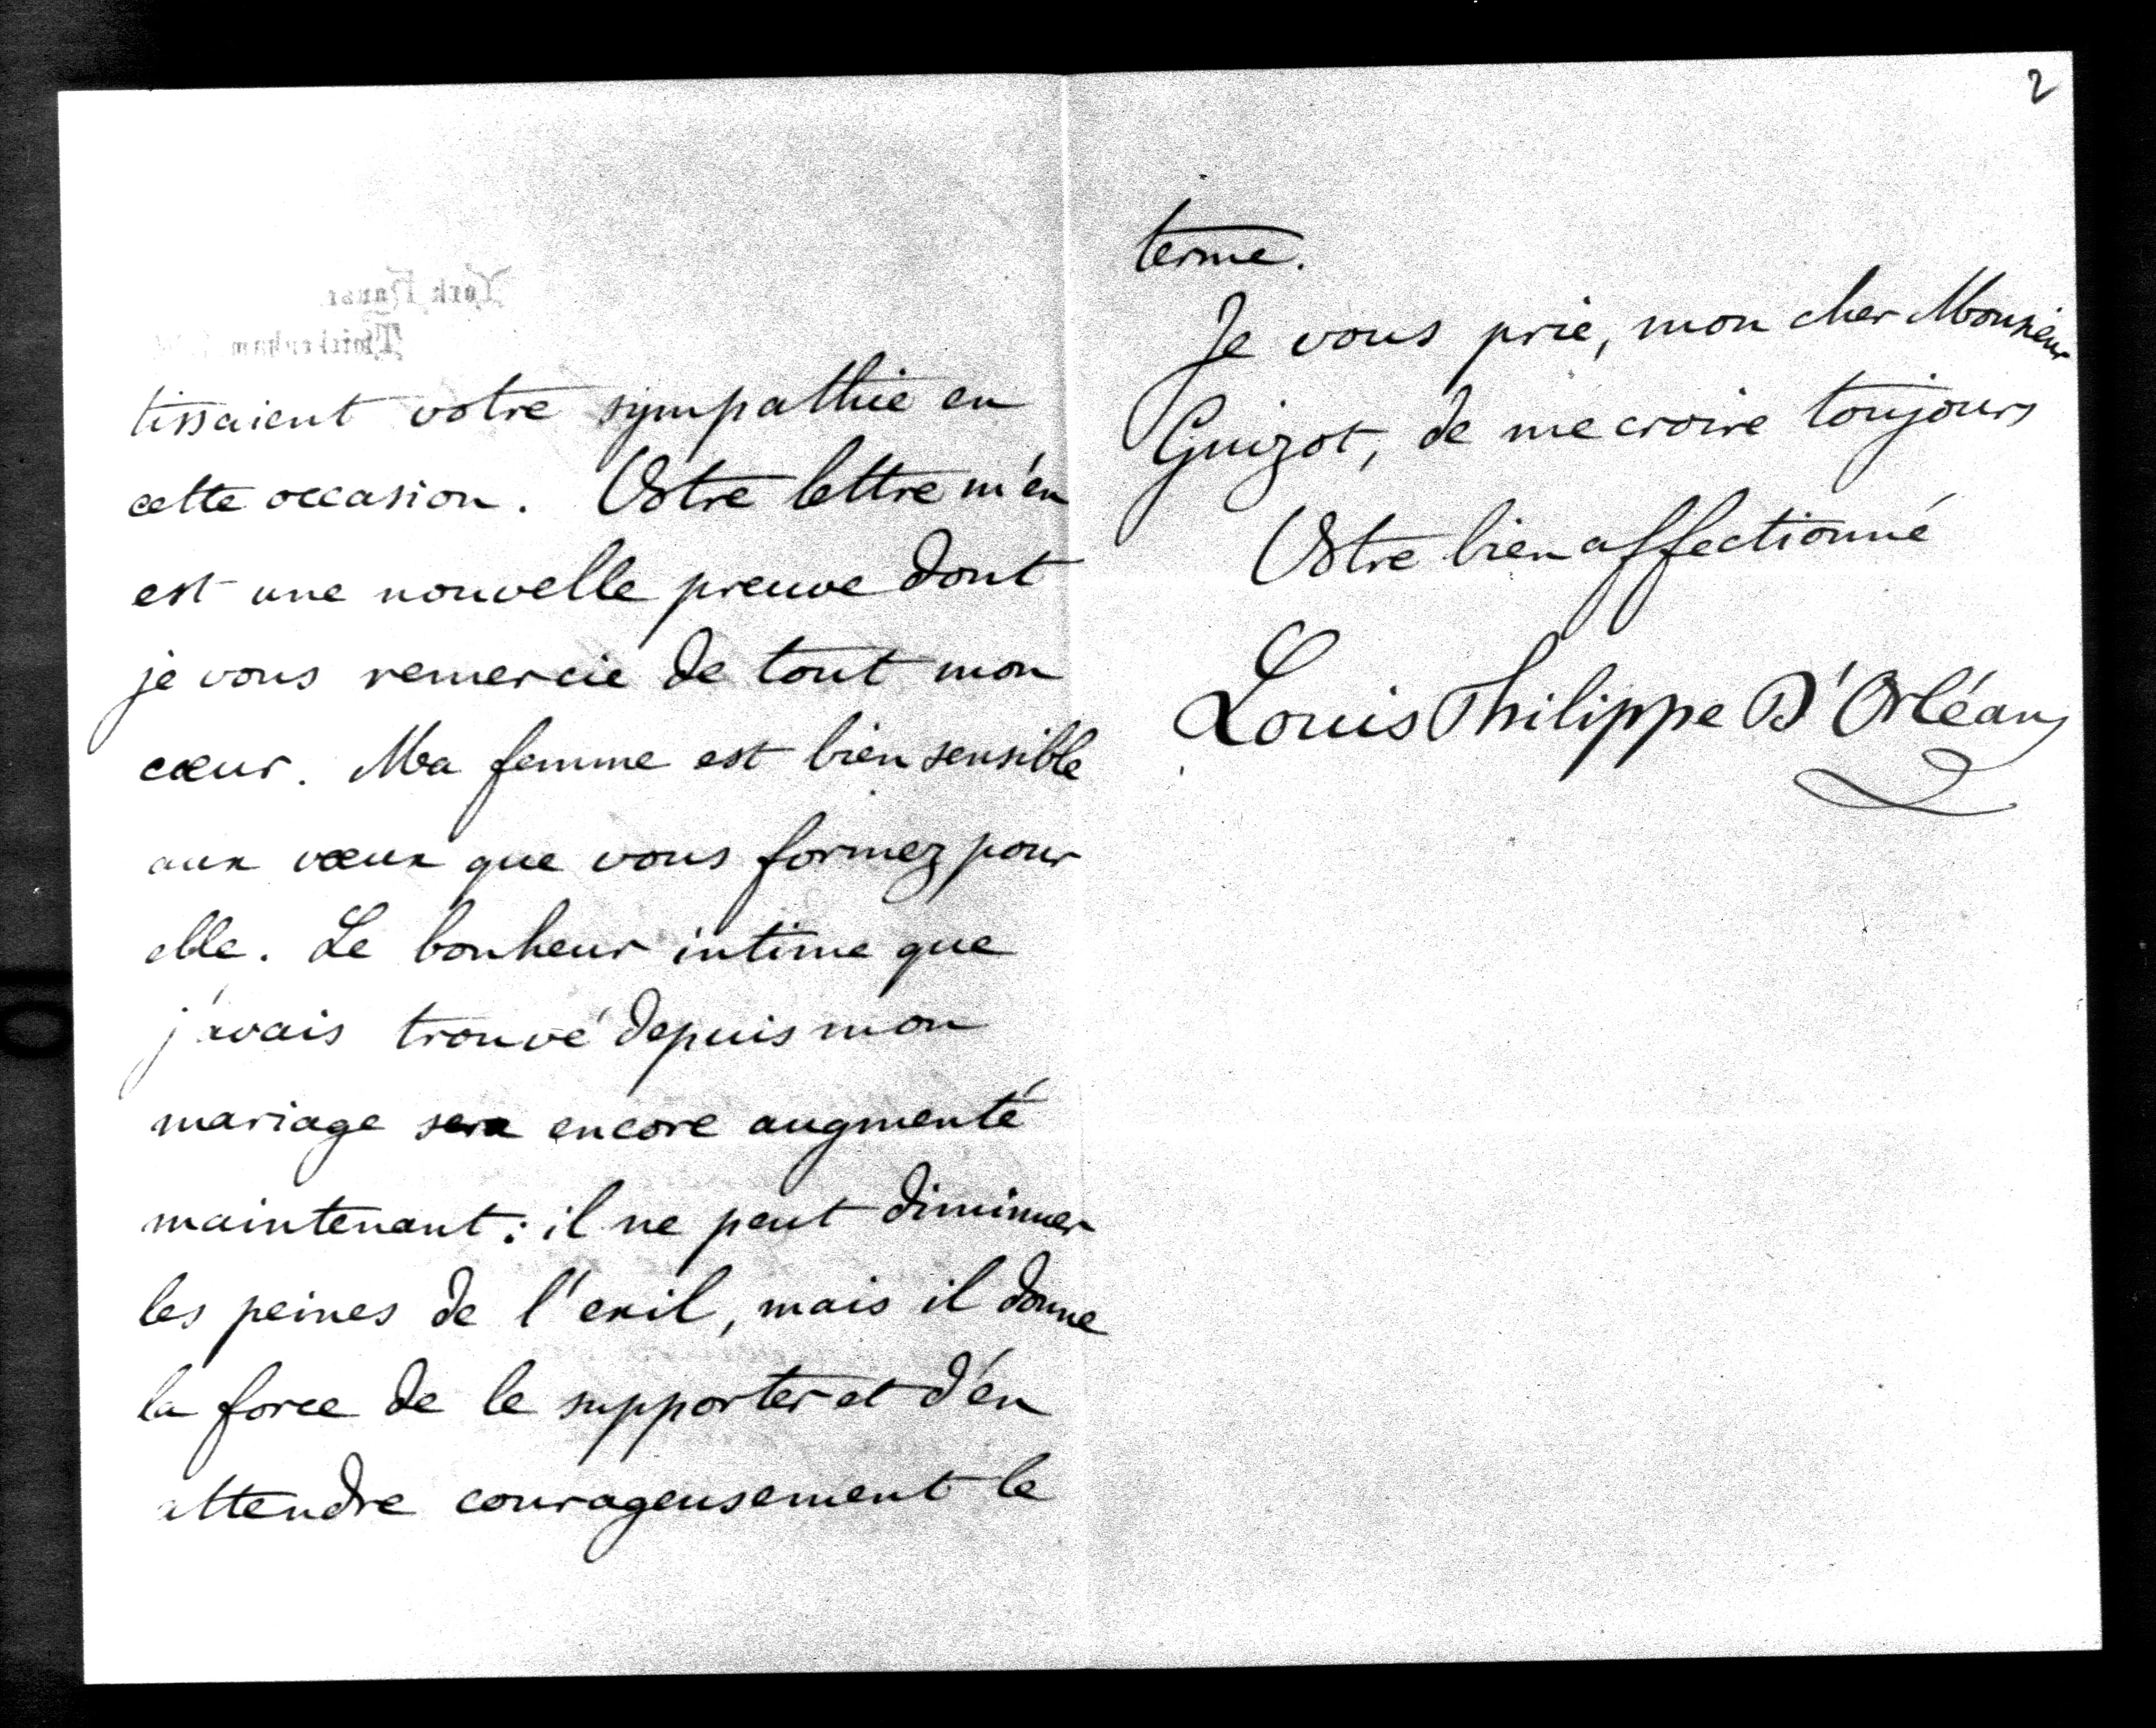 York House
Twickenham
tissaient votre sympathie en
cette occasion. Votre lettre m'en
est une nouvelle preuve dont
je vous remercie de tout mon
cœur. Ma femme est bien sensible
aux vœux que vous formez pour
elle. Le bonheur intime que
j'avais trouvé depuis mon
mariage sera encore augmenté
maintenant : il ne peut diminuer
les peines de l'exil, mais il donne
la force de le supporter et d'en
attendre courageusement le
2
terme.
Je vous prie, mon cher Monsieur
Guizot, de me croire toujours
Votre bien affectionné
Louis Philippe D'Orléans